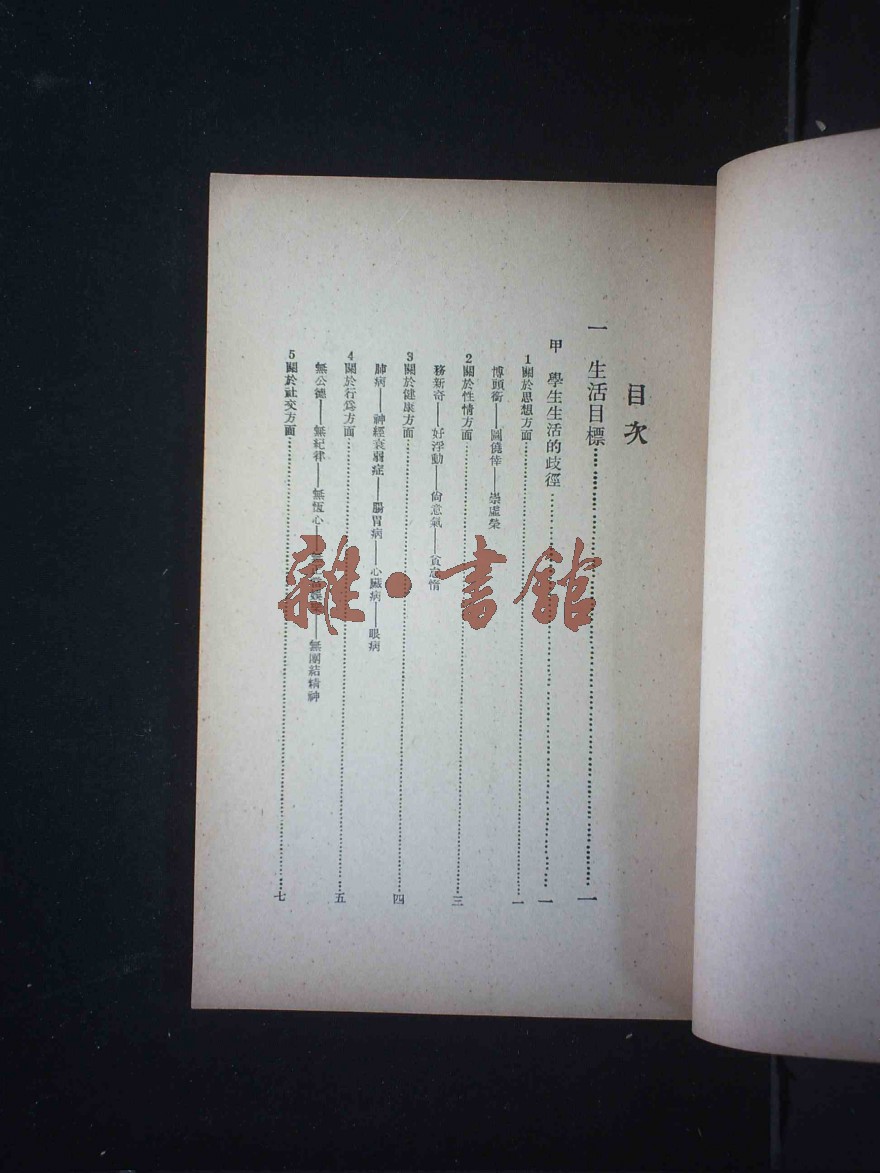 目次
一 生活目標……一
甲 學生生活的歧徑……一
1關於思想方面……一
博頭銜——圖僥倖——崇虛榮
2關於性情方面……三
務新奇——好浮動——尙意氣——貪怠惰
3關於健康方面……四
肺病——神經衰弱症——腸胃病——心臟病——眼病
4關於行爲方面……五
無公德——無紀律——無恆心————無團結精神
5關於社交方面……七
雜·書館